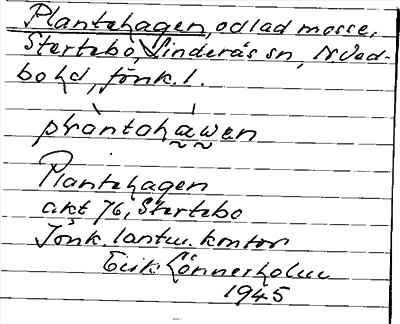 Plantehagen, odlad mosse,
Stertebo, Linderås sn, N. Ved-
bo hd, Jönk. l.
plantohawen
Plantehagen
akt 76, Stertebo
Jönk. lantm. kontor
Erik Lönnerholm
1945